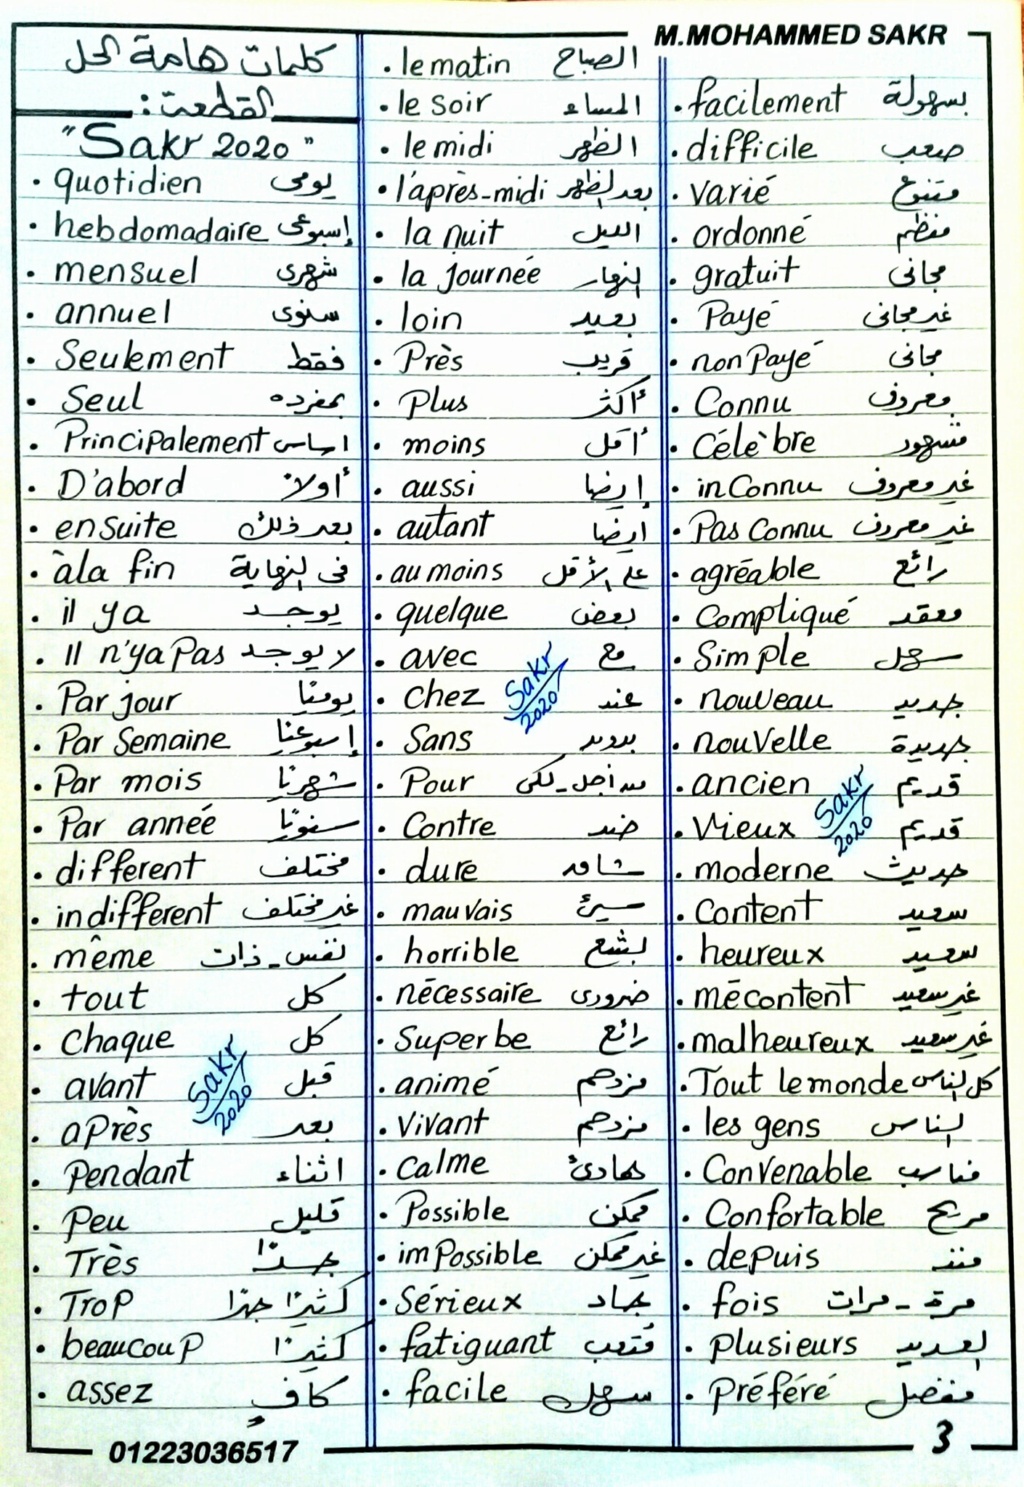 M.MOHAMMED SAKR
كلمات هامة لحل
القطعة:
"Sakr 2020"
• quotidien يومى
• hebdomadaire إسبوعى
• mensuel شهرى
• annuel سنوى
• Seulement فقط
• Seul بمفرده
• Principalement اساس
• D'abord أولاً
• ensuite بعد ذلك
• àla fin فى النهاية
• il ya يوجد
• Il n'ya Pas لا يوجد
• Par jour يوميًا
• Par Semaine إسبوعيًا
• Par mois شهريًا
• Par année سنويًا
• différent مختلف
• indifférent غير مختلف
• même نفس - ذات
• tout كل
• chaque كل
• avant قبل
• après بعد
• Pendant اثناء
• Peu قليل
• Très جدًا
• Trop كثيرًا جدًا
• beaucoup كثيرًا
• assez كافٍ
Sakr
2020
• le matin الصباح
• le soir المساء
• le midi الظهر
• l'après-midi بعد الظهر
• la nuit الليل
• la journée النهار
• loin بعيد
• Près قريب
• Plus أكثر
• moins أقل
• aussi إيضا
• autant أيضا
• au moins على الأقل
• quelque بعض
• avec مع
• chez عند
• Sans بدون
• Pour من أجل - لكى
• Contre ضد
• dure شاقه
• mauvais سيئ
• horrible بشع
• nécessaire ضرورى
• Superbe رائع
• animé مزدحم
• Vivant مزدحم
• Calme هادئ
• Possible ممكن
• impossible غير ممكن
• Sérieux جاد
• fatiguant متعب
• facile سهل
Sakr
2020
• facilement بسهولة
• difficile صعب
• varié متنوع
• ordonné منظم
• gratuit مجانى
• Payé غير مجانى
• non Payé مجانى
• Connu معروف
• Célèbre مشهور
• inConnu غير معروف
• Pas Connu غير معروف
• agréable رائع
• Compliqué معقد
• Simple سهل
• nouveau جديد
• nouvelle جديدة
• ancien قديم
• Vieux قديم
• moderne حديث
• Content سعيد
• heureux سعيد
• mécontent غير سعيد
• malheureux غير سعيد
• Tout le monde كل الناس
• les gens الناس
• Convenable مناسب
• Confortable مريح
• depuis منذ
• fois مرة - مرات
• plusieurs العديد
• Préféré مفضل
Sakr
2020
01223036517
3